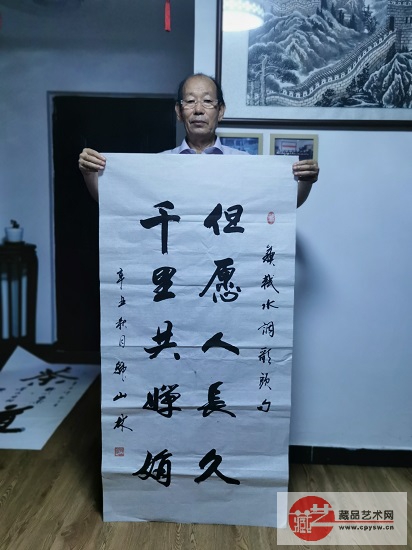 蘇軾水調歌頭句
但愿人長久
千里共嬋娟
辛丑秋月
山林
藏艺
藏品艺术网
www.cpysw.cn